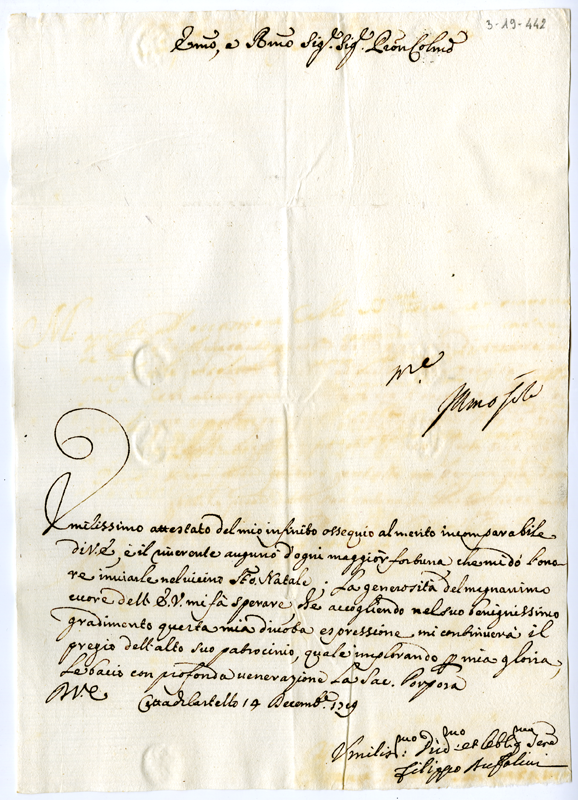 3-19-442
Emo, e Rmo Sig.r Sig.r Pron Colmo
Umilissimo attestato del mio infinito ossequio al merito incomparabile
di V.E., è il riverente augurio d'ogni maggior fortuna che mi dò l'ono-
re inviarle nel vicino Sto Natale. La generosità del magnanimo
cuore dell'E.V. mi fà sperare che accogliendo nel suo benignissimo
gradimento questa mia divota espressione mi continuerà il
pregio dell'alto suo patrocinio, quale implorando p mia gloria,
Le bacio con profonda venerazione La Sac. Porpora
D.V.E. Città di Castello 14 Decemb.e 1729
Umiliss.mo Div.mo et Obblig.mo Serv
Filippo Bufalini